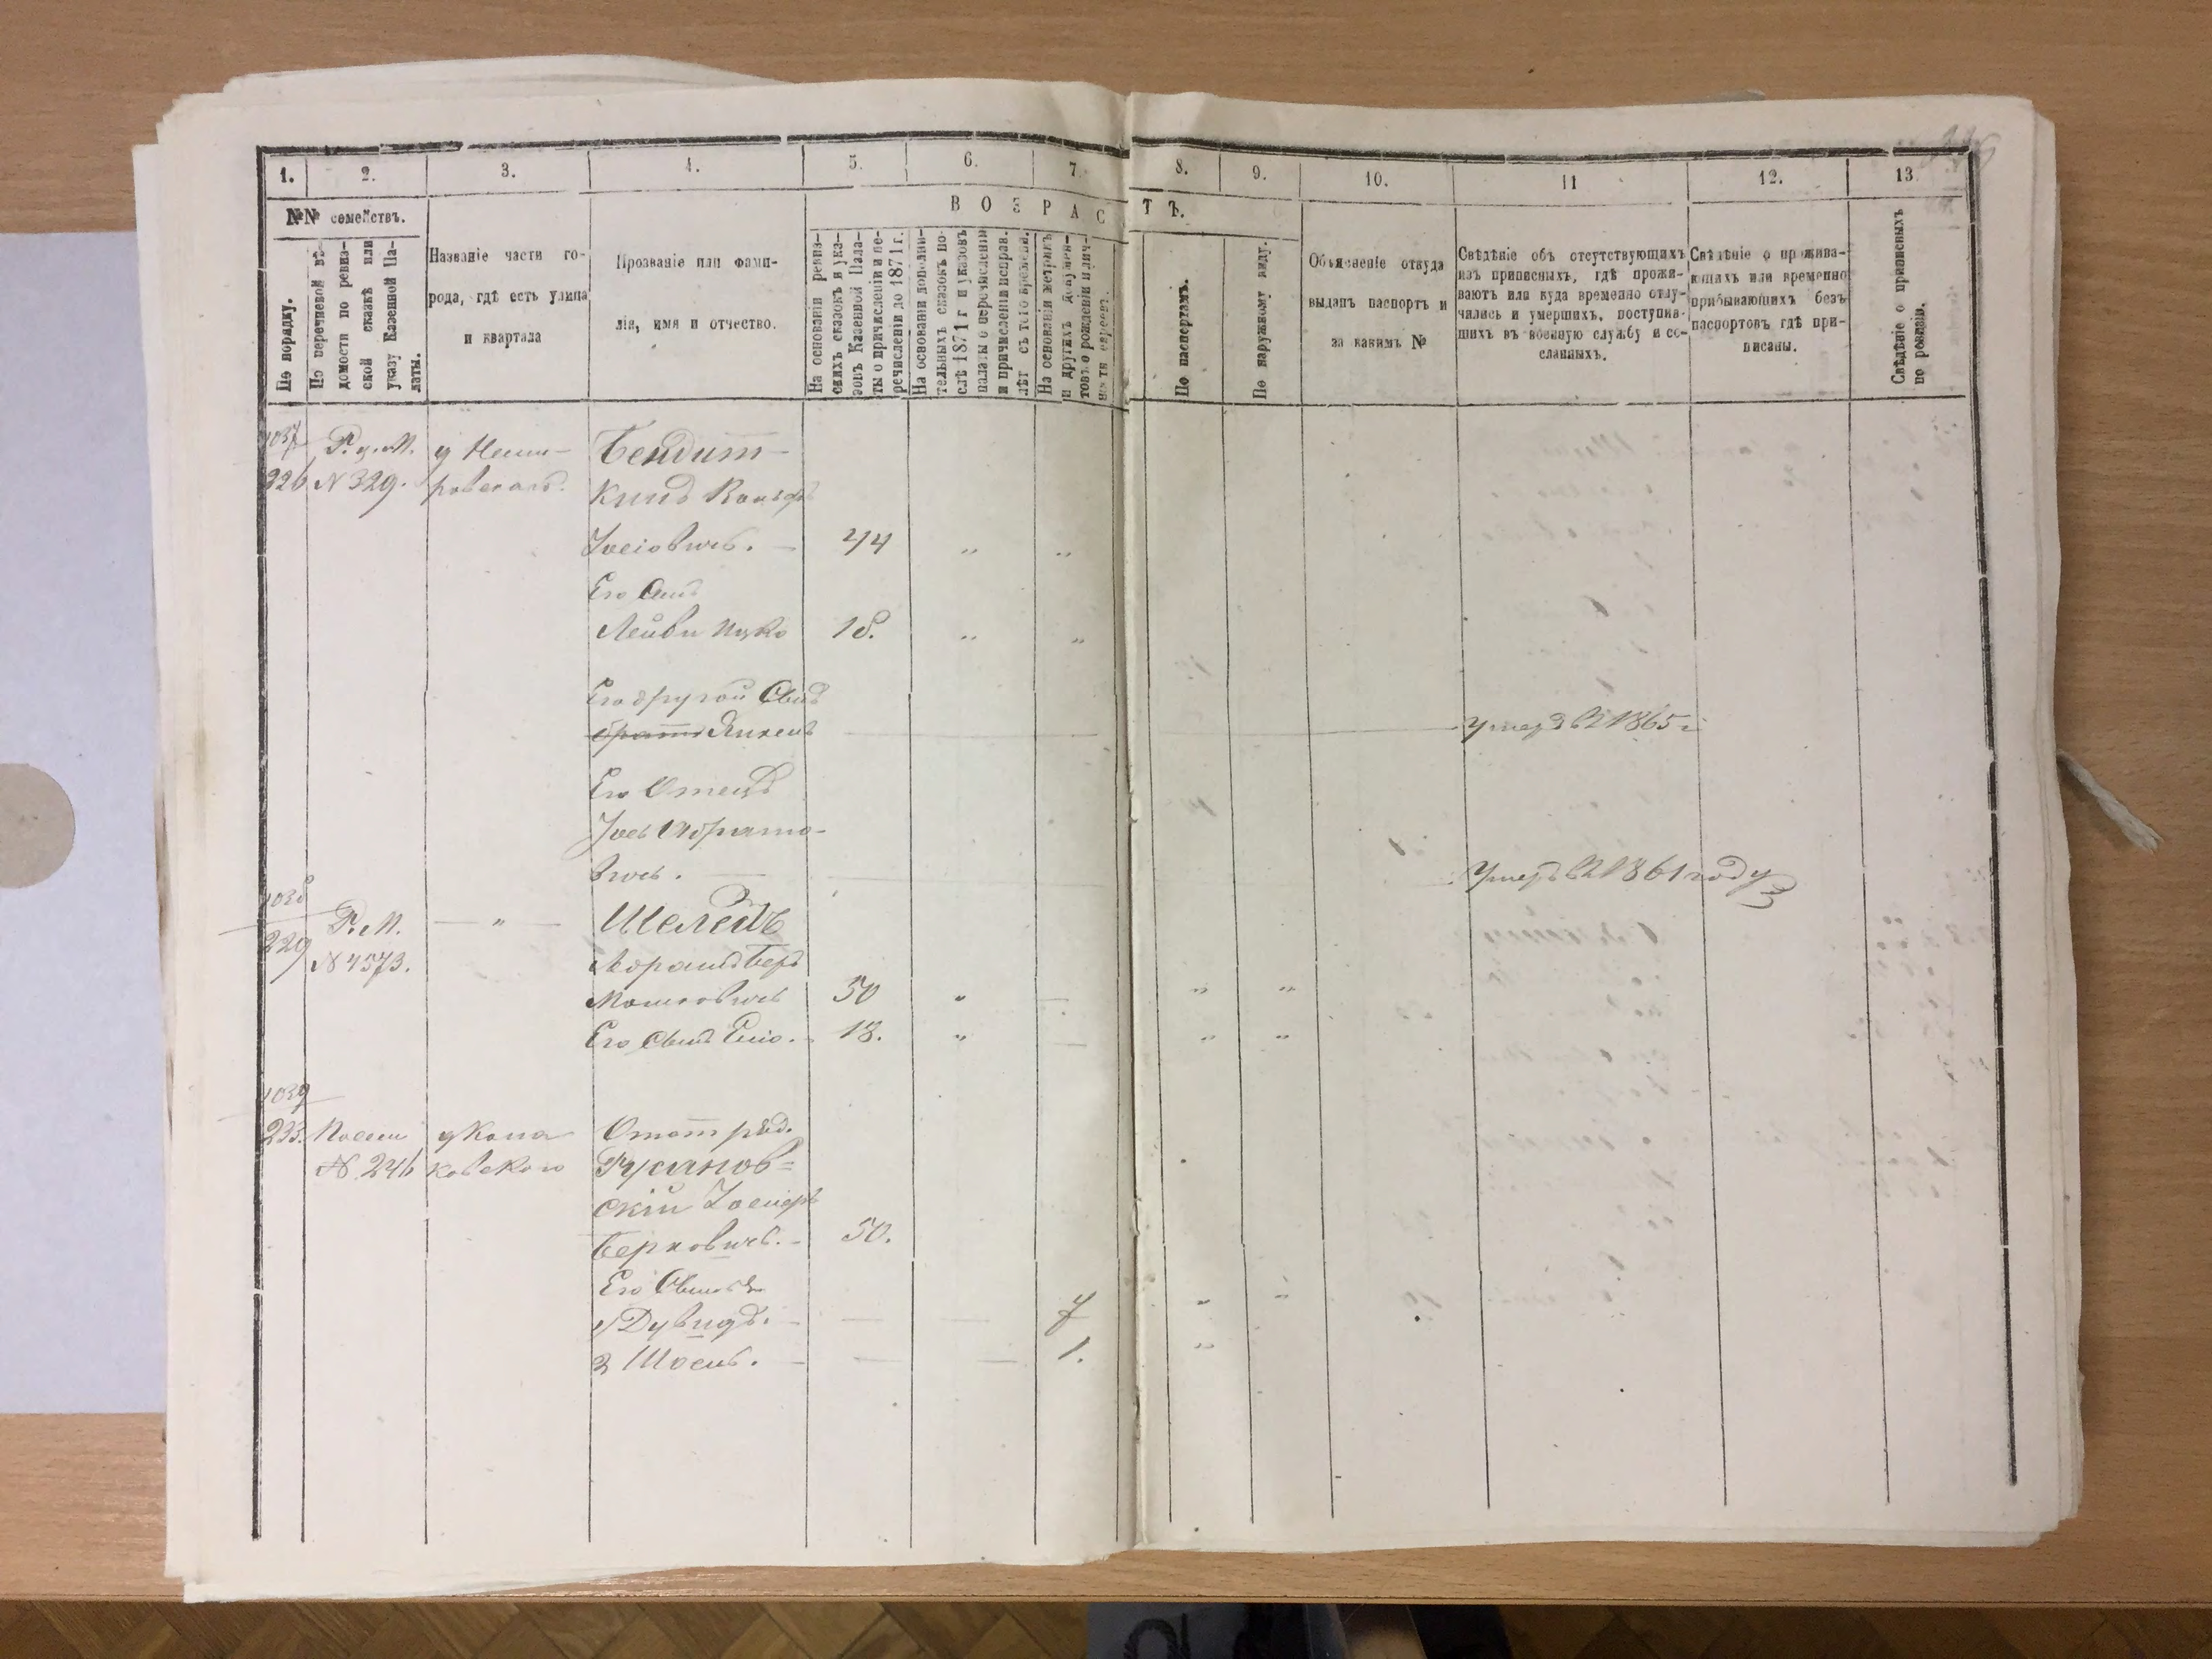 1.
2.
3.
4.
5.
6.
7.
8.
9.
10.
11
12.
13
В О З Р А С Т Ъ.
№№ семействъ.
По порядку.
По перечневой вѣ-
домости по ревиз-
ской сказкѣ или
указу Казенной Па-
латы.
Названіе части го-
рода, гдѣ есть улица
и квартала
Прозваніе или фами-
лія, имя и отчество.
На основаніи ревиз-
скихъ сказокъ и ука-
зовъ Казенной Пала-
ты о причисленіи и пе-
речисленіи до 1871 г.
На основаніи дополни-
тельныхъ сказокъ по-
слѣ 1871 г и указовъ
палаты о перечисленіи
и причисленіи исправ.
лѣт съ того времени.
На основаніи метрикъ
и другихъ докумен-
товъ о рожденіи и лич-
ности евреевъ.
По паспертамъ.
По наружному виду.
Объясненіе откуда
выданъ паспортъ и
за какимъ №
Свѣдѣніе объ отсутствующихъ
изъ приписныхъ, гдѣ прожи-
ваютъ или куда временно отлу-
чались и умершихъ, поступив-
шихъ въ военную службу и со-
сланныхъ.
Свѣдѣніе о прожива-
ющихъ или временно
прибывающихъ безъ
паспортовъ гдѣ при-
писаны.
Свѣдѣніе о приписныхъ
по ревизіи.
1037
226 N 329.
Бендит-
кинд Вольфъ
Іосіовичъ. - 44 " "
Его Сынъ
Лейви Ицко 18. " "
Его другой Сынъ
братъ Янкель умеръ въ 1865 г
Его Отецъ
Іось Абрамо-
вичъ. умеръ въ 1861 году
1038
229 Р. М. - " -
N 4573.
Абрамъ Беръ
Мошковичъ 50 " - " "
Его Сынъ 18. " - " "
1039
233.
N. 246
Гусанов=
скій
Берковичъ. - 50.
Его Сыновья
1 Дувидъ. - - - 7 " "
2 - - - 1. "